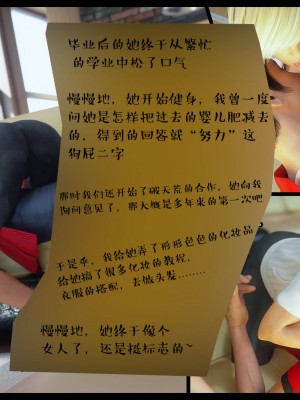 毕业后的她终于从繁忙
的学业中松了口气
慢慢地，她开始健身，我曾一度
问她是怎样把过去的婴儿肥减去
的，得到的回答就“努力”这
狗屁二字
那时我们还开始了破天荒的合作，她向我
询问意见了，那大概是多年来的第一次吧？
于是乎，我给她弄了形形色色的化妆品，
给她搞了很多化妆的教程，
衣服的搭配，去做头发........
慢慢地，她终于像个
女人了，还是挺标志的~